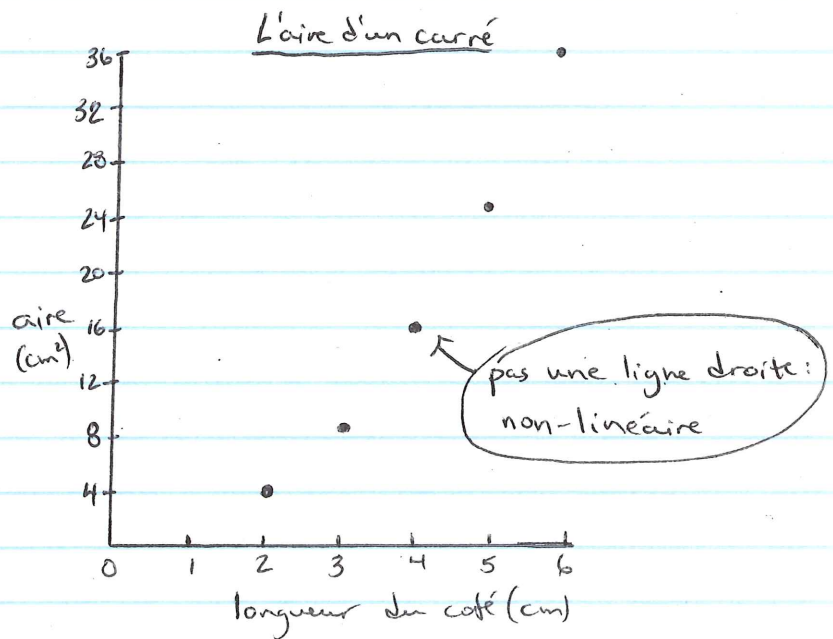 L'aire d'un carré
36
32
28
24
20
16
12
8
4
aire
(cm²)
pas une ligne droite:
non-linéaire
0 1 2 3 4 5 6
longueur du coté (cm)